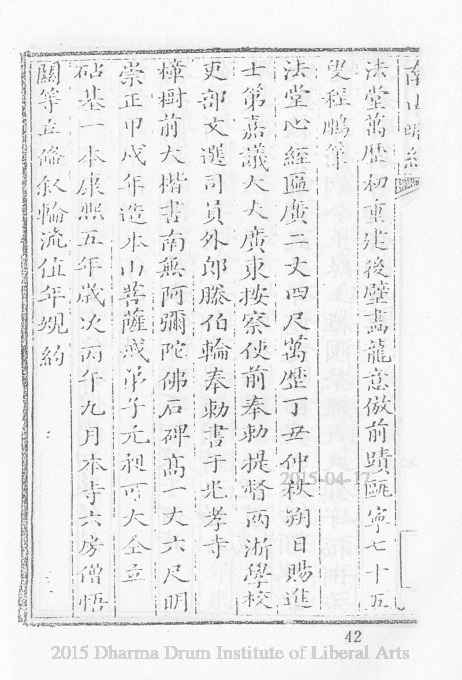 南山
法堂萬歷初重建後壁畵龍意倣前蹟甌寧七十五
叟程鵬筆
法堂心經區廣二丈四尺萬歷丁丑仲秋朔日賜進
士第嘉議大夫廣東按察使前奉勅提督兩浙學校
吏部文選司員外郎滕伯輪奉勅書于光孝寺
樟樹前大楷書南無阿彌陀佛石碑高一丈六尺明
崇正甲戌年造本山菩薩戒弟子元 可大仝立
砧基一本康熙五年歲次丙午九月本寺六房僧悟
關等立條叙輪流值年規約
2015-04-17
42
2015 Dharma Drum Institute of Liberal Arts